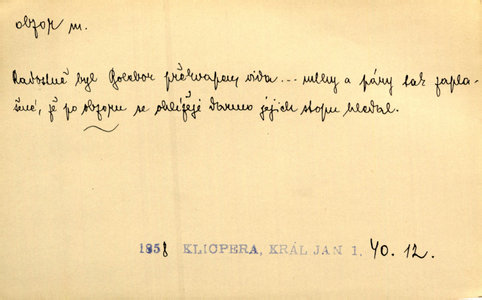 obzor m.
Radostně byl Borbor překvapen, vida... mlhy a páry tak zapla-
šené, že po obzoru se ohlížeje darmo jejich stopu hledal.
1858 KLICPERA, KRÁL JAN 1, 40.12.